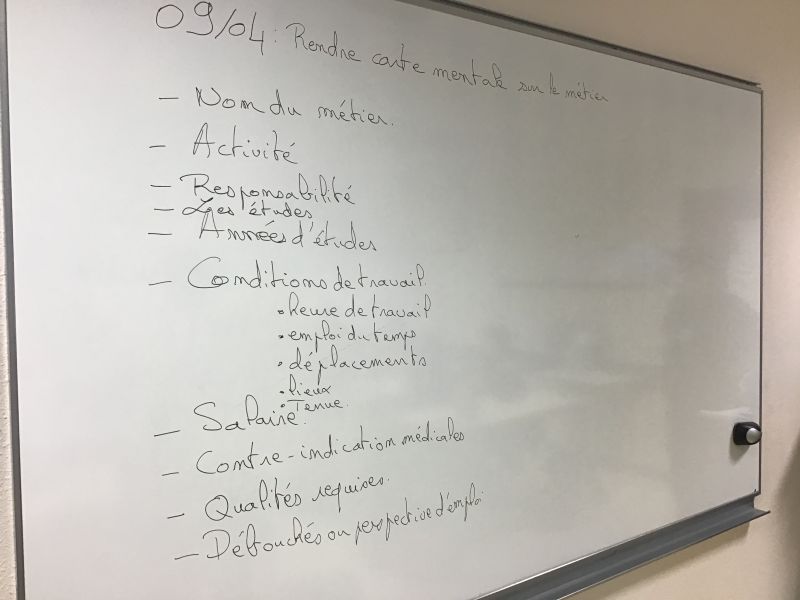 09/04 : Rendre carte mentale sur le métier
- Nom du métier.
- Activité
- Responsabilité
- Les études
- Années d'études
- Conditions de travail.
• heure de travail
• emploi du temps
• déplacements
• lieux
• Tenue.
- Salaire.
- Contre-indication médicales
- Qualités requises.
- Débouchés ou perspective d'emploi